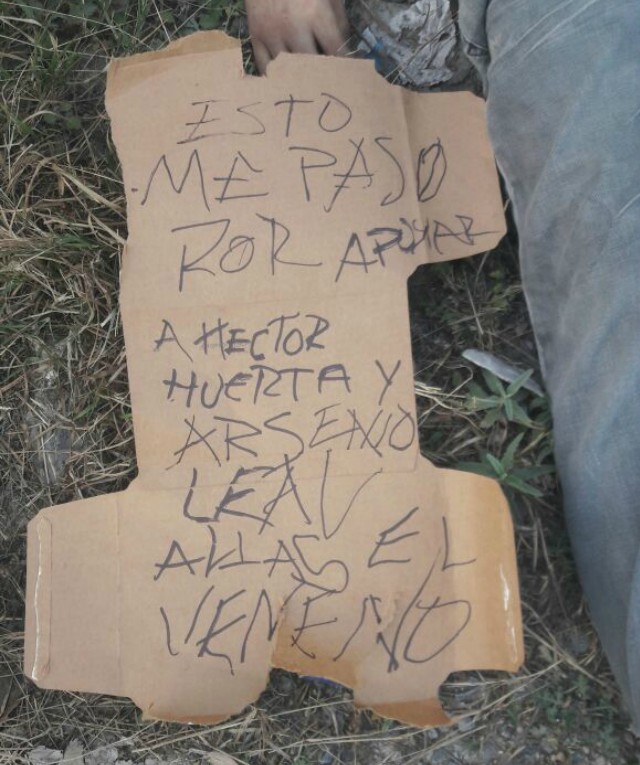 ESTO
ME PASO
POR APOYAR
A HECTOR
HUERTA Y
ARSENIO
LEAL
ALIAS EL
VENENO